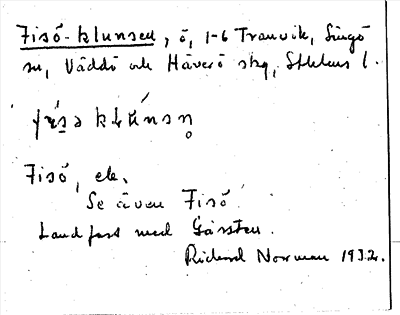 Fisö-klunsen, ö, 1-6 Tranvik, Singö
sn, Väddö och Häverö skg, Sthlms l.
Fisö, ek.
Se även Fisö.
Landfast med Gåssten.
Rickard Norrman 1932.